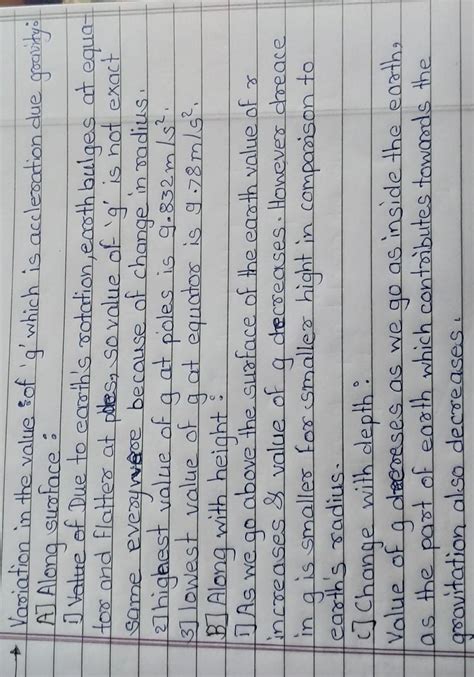 → Variation in the value of 'g' which is accleration due gravity:
A] Along surface:
1] Value of Due to earth's rotation, earth bulges at equa-
tor and flatter at poles, so value of 'g' is not exact
same everywere because of change in radius.
2] highest value of g at poles is 9.832 m/s².
3] lowest value of g at equator is 9.78 m/s².
B] Along with height:
1] As we go above the surface of the earth value of r
increases & value of g decreases. However dreace
in g is smaller for smaller hight in comparison to
earth's radius.
C] Change with depth:
Value of g decreses as we go as inside the earth,
as the part of earth which contributes towards the
gravitation also decreases.